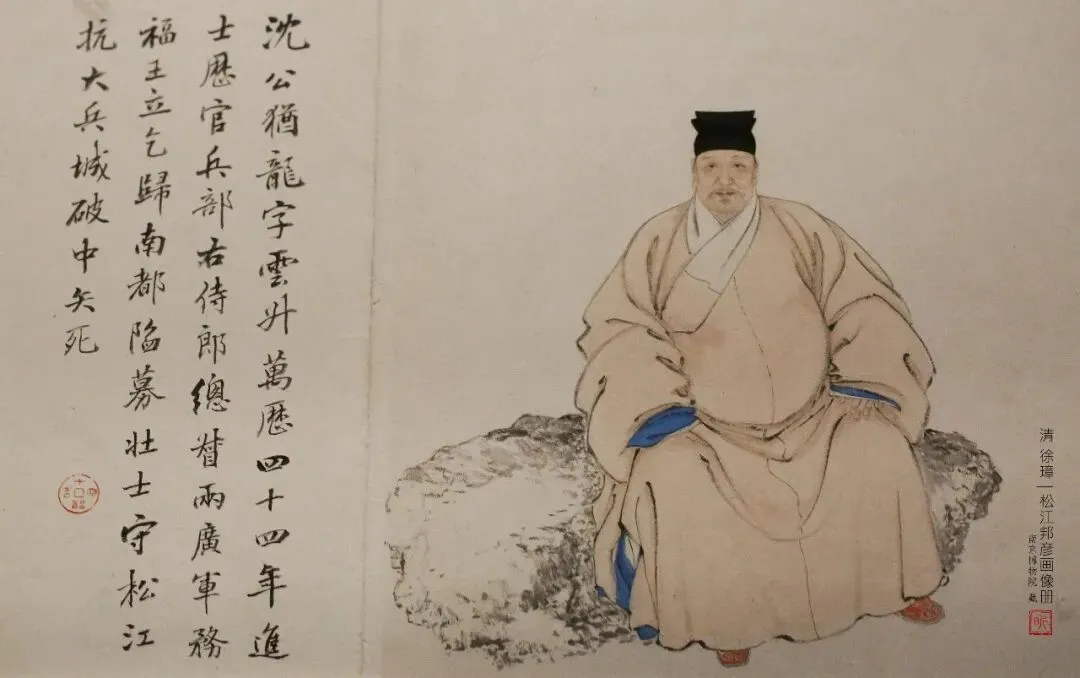 沈公猶龍字雲升萬歷四十四年進
士歷官兵部右侍郎總督兩廣軍務
福王立乞歸南都陷募壯士守松江
抗大兵城破中矢死
清 徐璋 | 松江邦彦画像册
南京博物院 藏